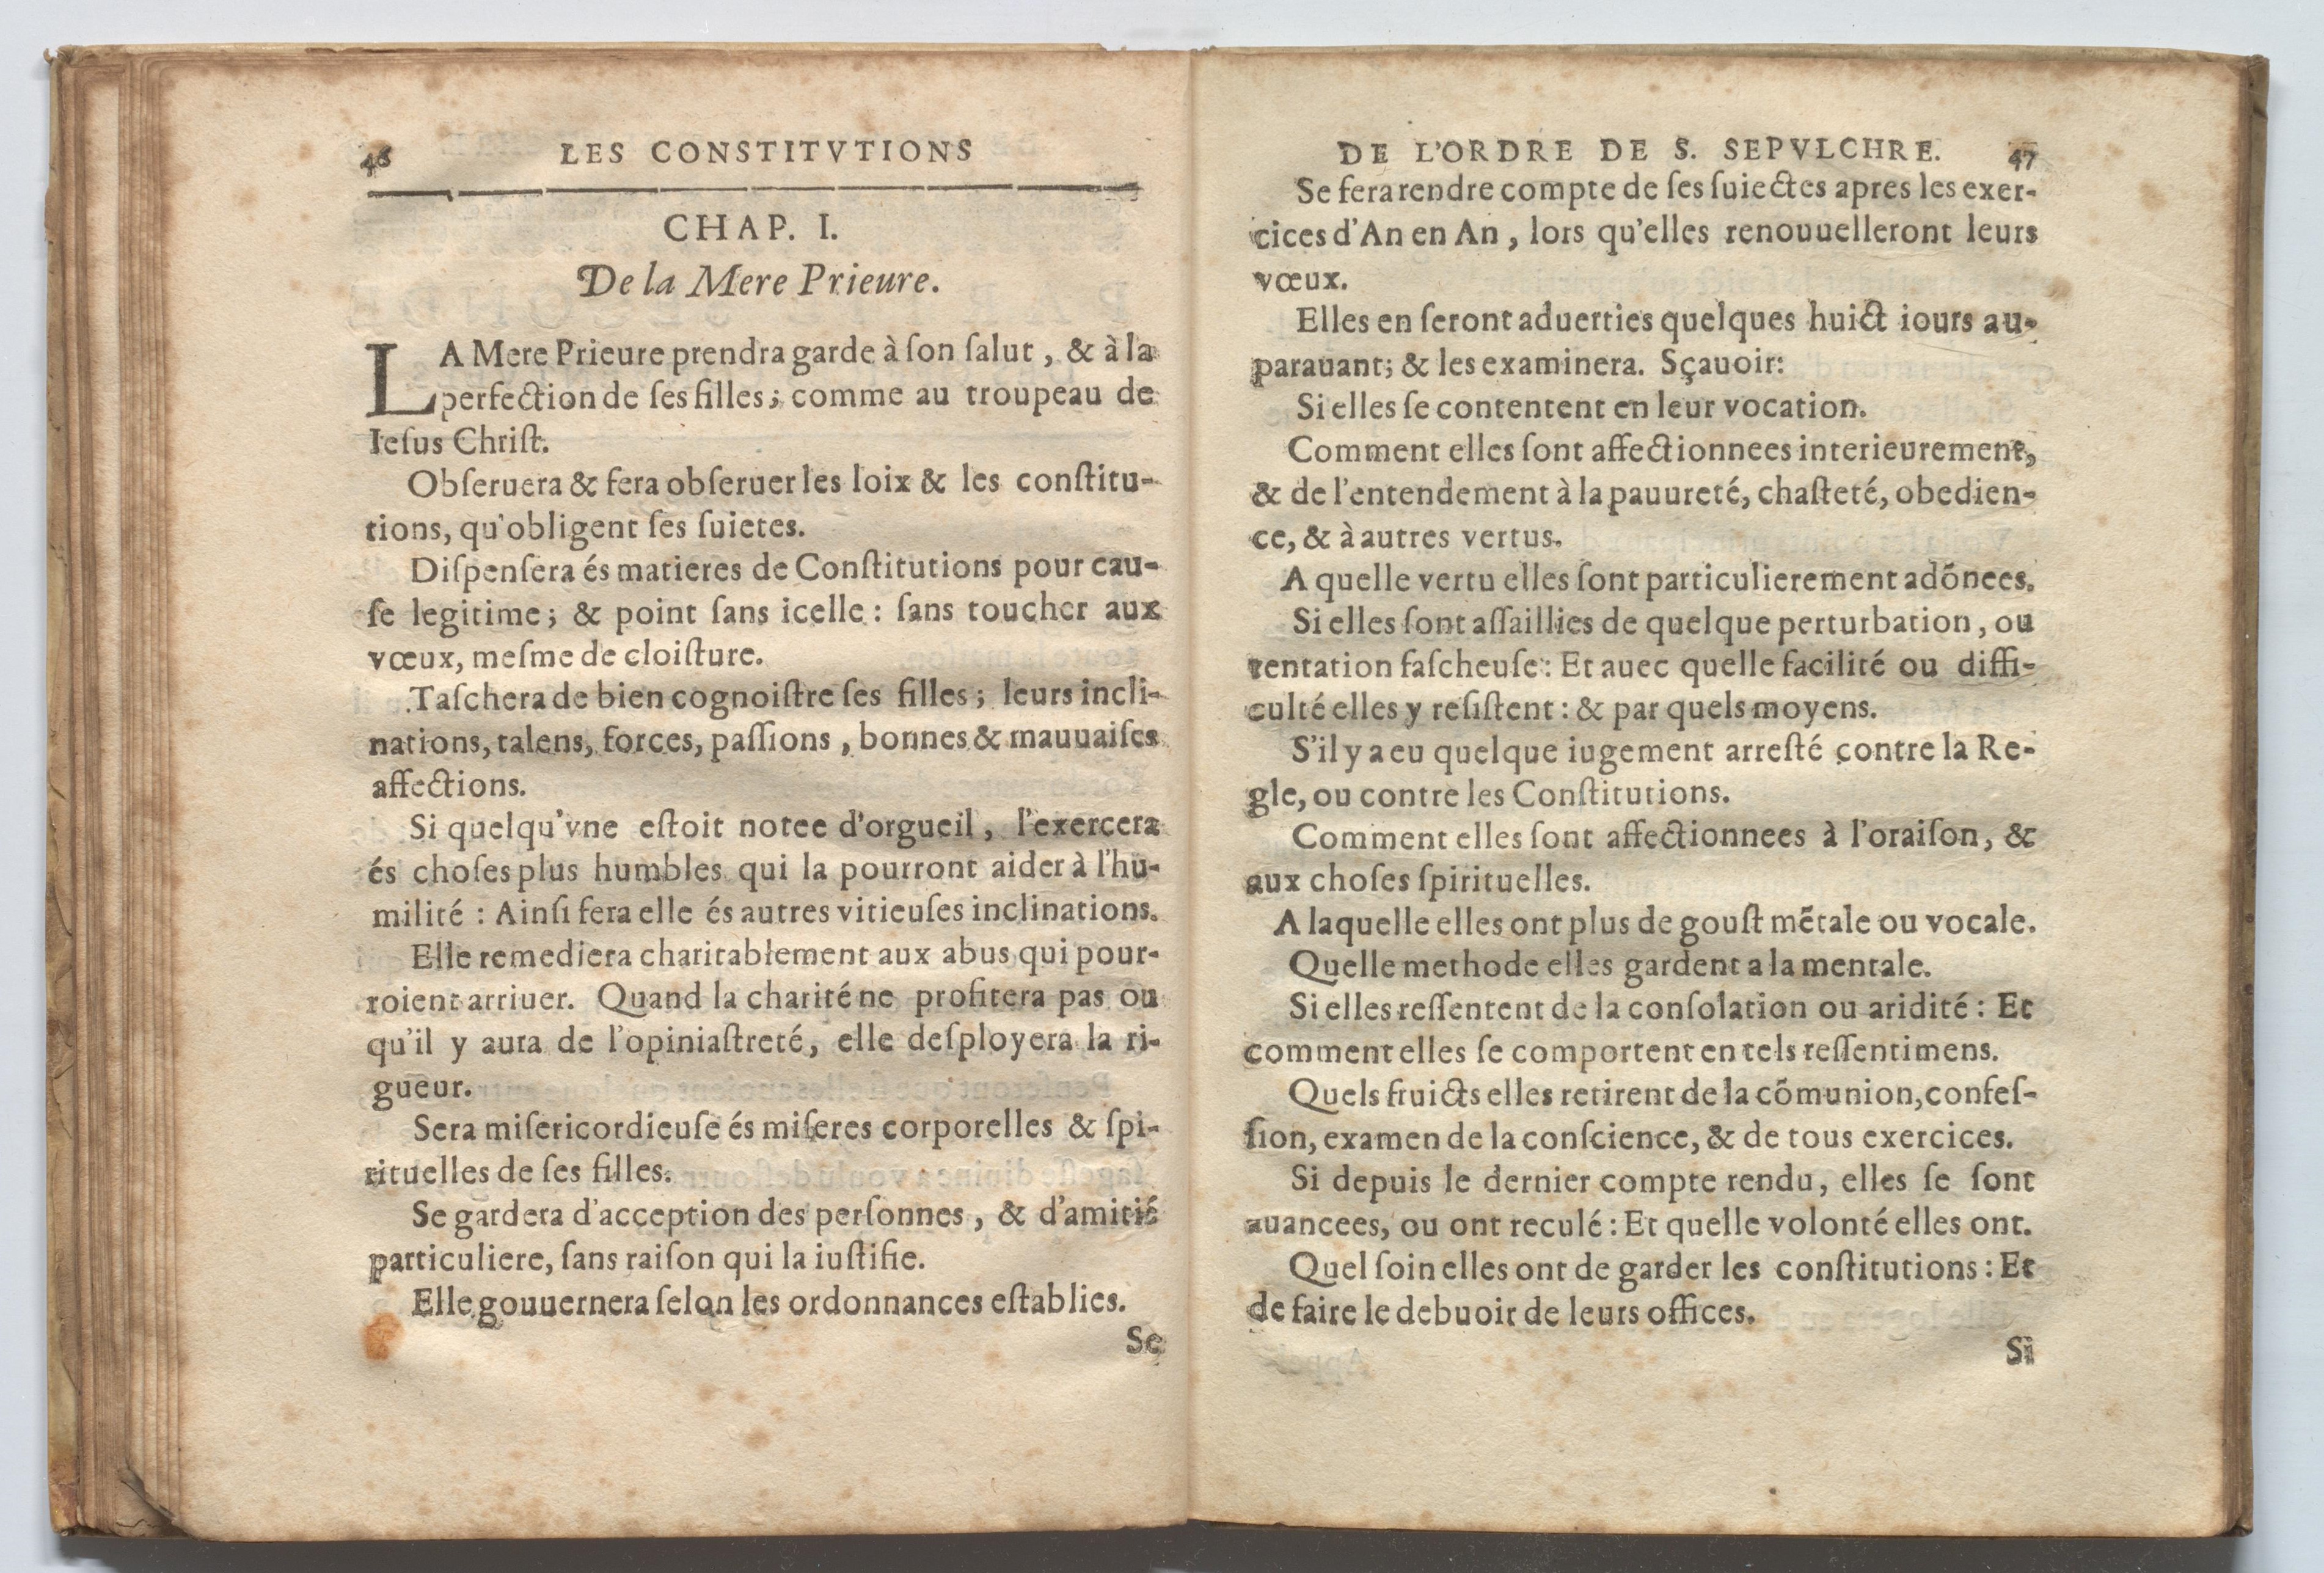 46 LES CONSTITVTIONS
CHAP. I.
De la Mere Prieure.
LA Mere Prieure prendra garde à ſon ſalut, & à la
perfection de ſes filles; comme au troupeau de
Ieſus Chriſt.
Obſeruera & fera obſeruer les loix & les conſtitu-
tions, qu'obligent ſes ſuietes.
Diſpenſera és matieres de Conſtitutions pour cau-
ſe legitime; & point ſans icelle: ſans toucher aux
vœux, meſme de cloiſture.
Taſchera de bien cognoiſtre ſes filles; leurs incli-
nations, talens, forces, paſſions, bonnes & mauuaiſes
affections.
Si quelqu'vne eſtoit notee d'orgueil, l'exercera
és choſes plus humbles qui la pourront aider à l'hu-
milité: Ainſi fera elle és autres vitieuſes inclinations.
Elle remediera charitablement aux abus qui pour-
roient arriuer. Quand la charité ne profitera pas ou
qu'il y aura de l'opiniaſtreté, elle deſployera la ri-
gueur.
Sera miſericordieuſe és miſeres corporelles & ſpi-
rituelles de ſes filles.
Se gardera d'acception des perſonnes, & d'amitié
particuliere, ſans raiſon qui la iuſtifie.
Elle gouuernera ſelon les ordonnances eſtablies.
Se
DE L'ORDRE DE S. SEPVLCHRE. 47
Se fera rendre compte de ſes ſuiectes apres les exer-
cices d'An en An, lors qu'elles renouuelleront leurs
vœux.
Elles en ſeront aduerties quelques huict iours au-
parauant; & les examinera. Sçauoir:
Si elles ſe contentent en leur vocation.
Comment elles ſont affectionnees interieurement,
& de l'entendement à la pauureté, chaſteté, obedien-
ce, & à autres vertus.
A quelle vertu elles ſont particulierement adõnees.
Si elles ſont aſſaillies de quelque perturbation, ou
tentation faſcheuſe: Et auec quelle facilité ou diffi-
culté elles y reſiſtent: & par quels moyens.
S'il y a eu quelque iugement arreſté contre la Re-
gle, ou contre les Conſtitutions.
Comment elles ſont affectionnees à l'oraiſon, &
aux choſes ſpirituelles.
A laquelle elles ont plus de gouſt mẽtale ou vocale.
Quelle methode elles gardent a la mentale.
Si elles reſſentent de la conſolation ou aridité: Et
comment elles ſe comportent en tels reſſentimens.
Quels fruicts elles retirent de la cõmunion, confeſ-
ſion, examen de la conſcience, & de tous exercices.
Si depuis le dernier compte rendu, elles ſe ſont
auancees, ou ont reculé: Et quelle volonté elles ont.
Quel ſoin elles ont de garder les conſtitutions: Et
de faire le debuoir de leurs offices.
Si